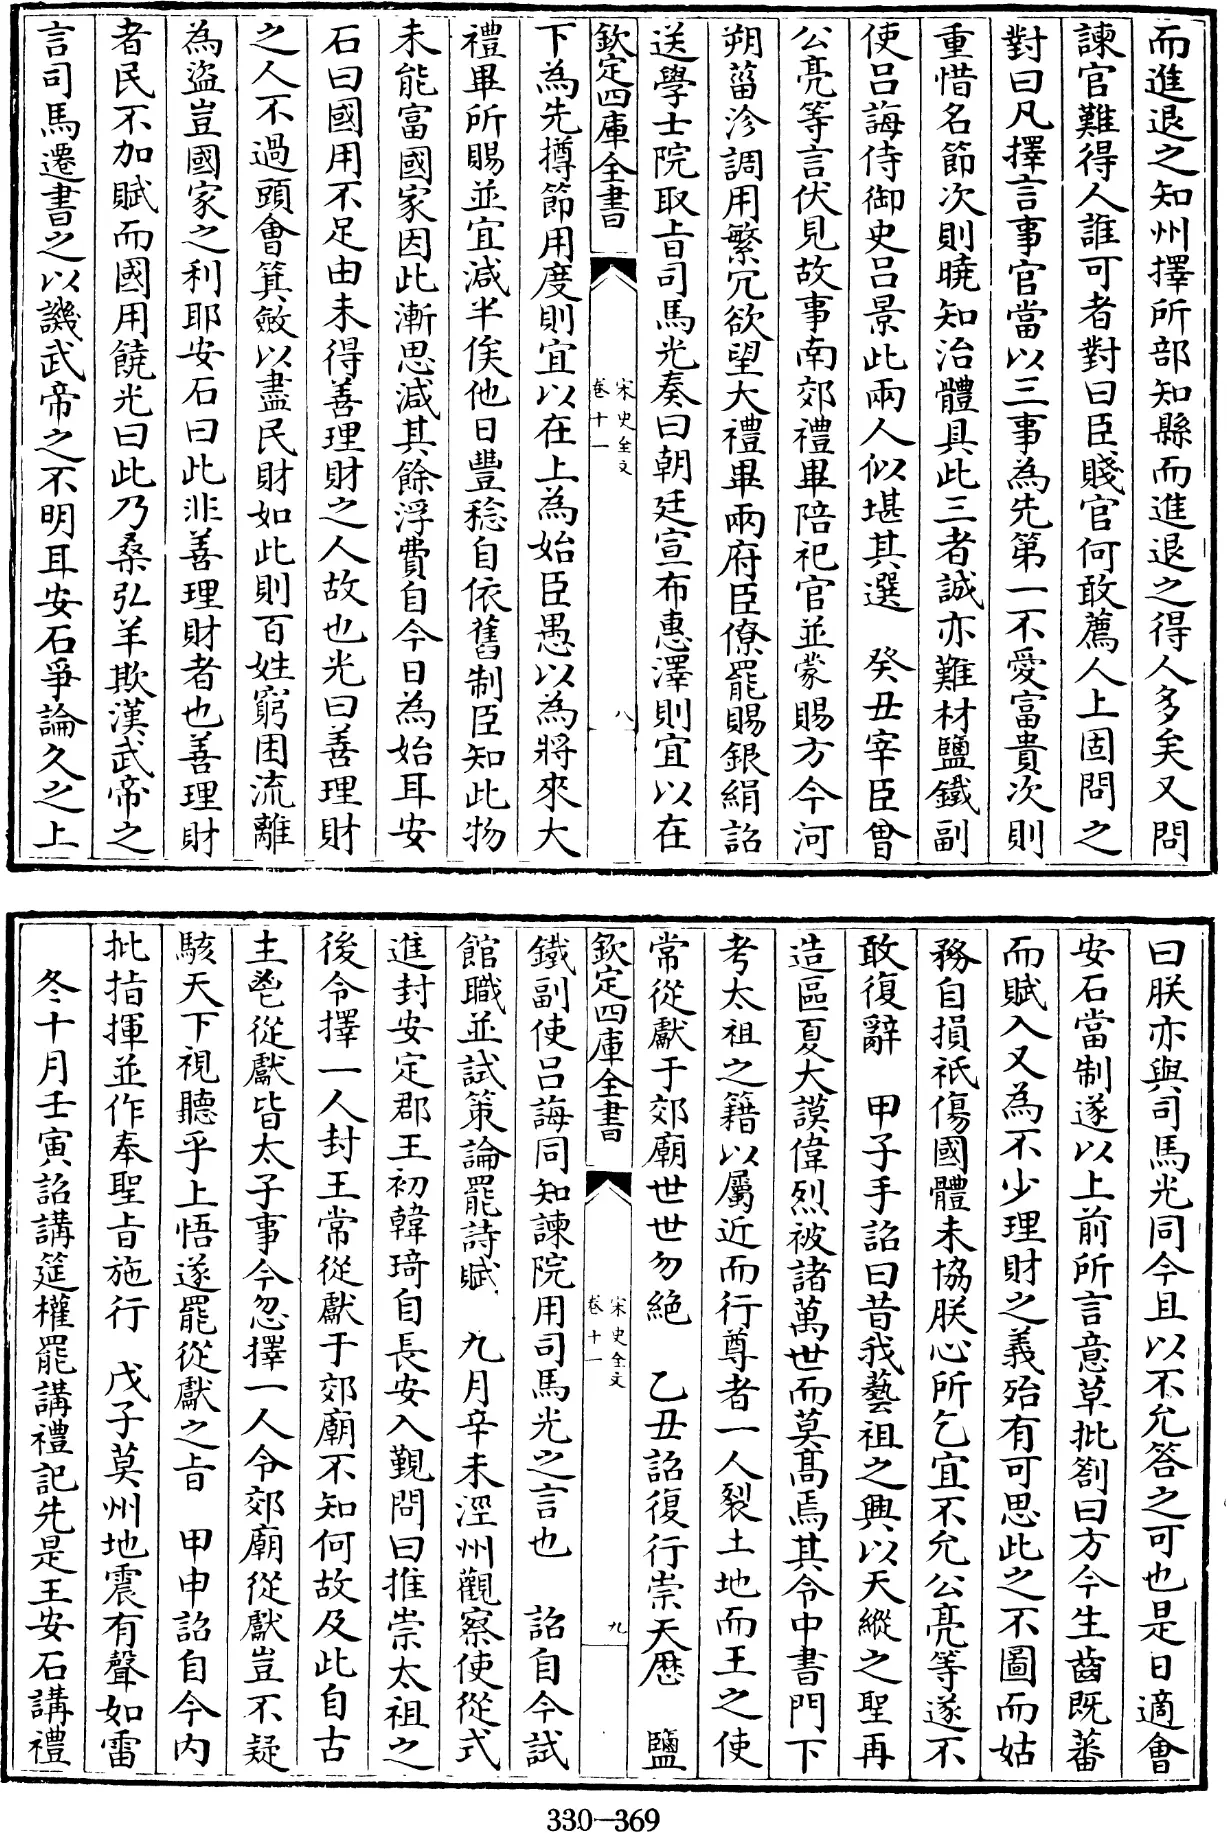 而進退之知州擇所部知縣而進退之得人多矣又問
諫官難得人誰可者對曰臣賤官何敢薦人上固問之
對曰凡擇言事官當以三事為先第一不愛富貴次則
重惜名節次則曉知治體具此三者誠亦難材鹽鐵副
使呂誨侍御史呂景此兩人似堪其選　癸丑宰臣曾
公亮等言伏見故事南郊禮畢陪祀官並蒙賜方今河
朔菑沴調用繁冗欲望大禮畢兩府臣僚罷賜銀絹詔
送學士院取旨司馬光奏曰朝廷宣布惠澤則宜以在
欽定四庫全書　宋史全文卷十一　八
下為先撙節用度則宜以在上為始臣愚以為將來大
禮畢所賜並宜減半俟他日豐稔自依舊制臣知此物
未能富國家因此漸思減其餘浮費自今日為始耳安
石曰國用不足由未得善理財之人故也光曰善理財
之人不過頭會箕斂以盡民財如此則百姓窮困流離
為盜豈國家之利耶安石曰此非善理財者也善理財
者民不加賦而國用饒光曰此乃桑弘羊欺漢武帝之
言司馬遷書之以譏武帝之不明耳安石爭論久之上
曰朕亦與司馬光同今且以不允答之可也是日適會
安石當制遂以上前所言意草批劄曰方今生齒既蕃
而賦入又為不少理財之義殆有可思此之不圖而姑
務自損祇傷國體未協朕心所乞宜不允公亮等遂不
敢復辭　甲子手詔曰昔我藝祖之興以天縱之聖再
造區夏大謨偉烈被諸萬世而莫髙焉其令中書門下
考太祖之籍以屬近而行尊者一人裂土地而王之使
常從獻于郊廟世世勿絶　乙丑詔復行崇天厯　鹽
欽定四庫全書　宋史全文卷十一　九
鐵副使呂誨同知諫院用司馬光之言也　詔自今試
館職並試策論罷詩賦　九月辛未涇州觀察使從式
進封安定郡王初韓琦自長安入覲問曰推崇太祖之
後令擇一人封王常從獻于郊廟不知何故及此自古
主鬯從獻皆太子事今忽擇一人令郊廟從獻豈不疑
駭天下視聽乎上悟遂罷從獻之旨　甲申詔自今内
批指揮並作奉聖旨施行　戊子莫州地震有聲如雷
冬十月壬寅詔講筵權罷講禮記先是王安石講禮
330—369